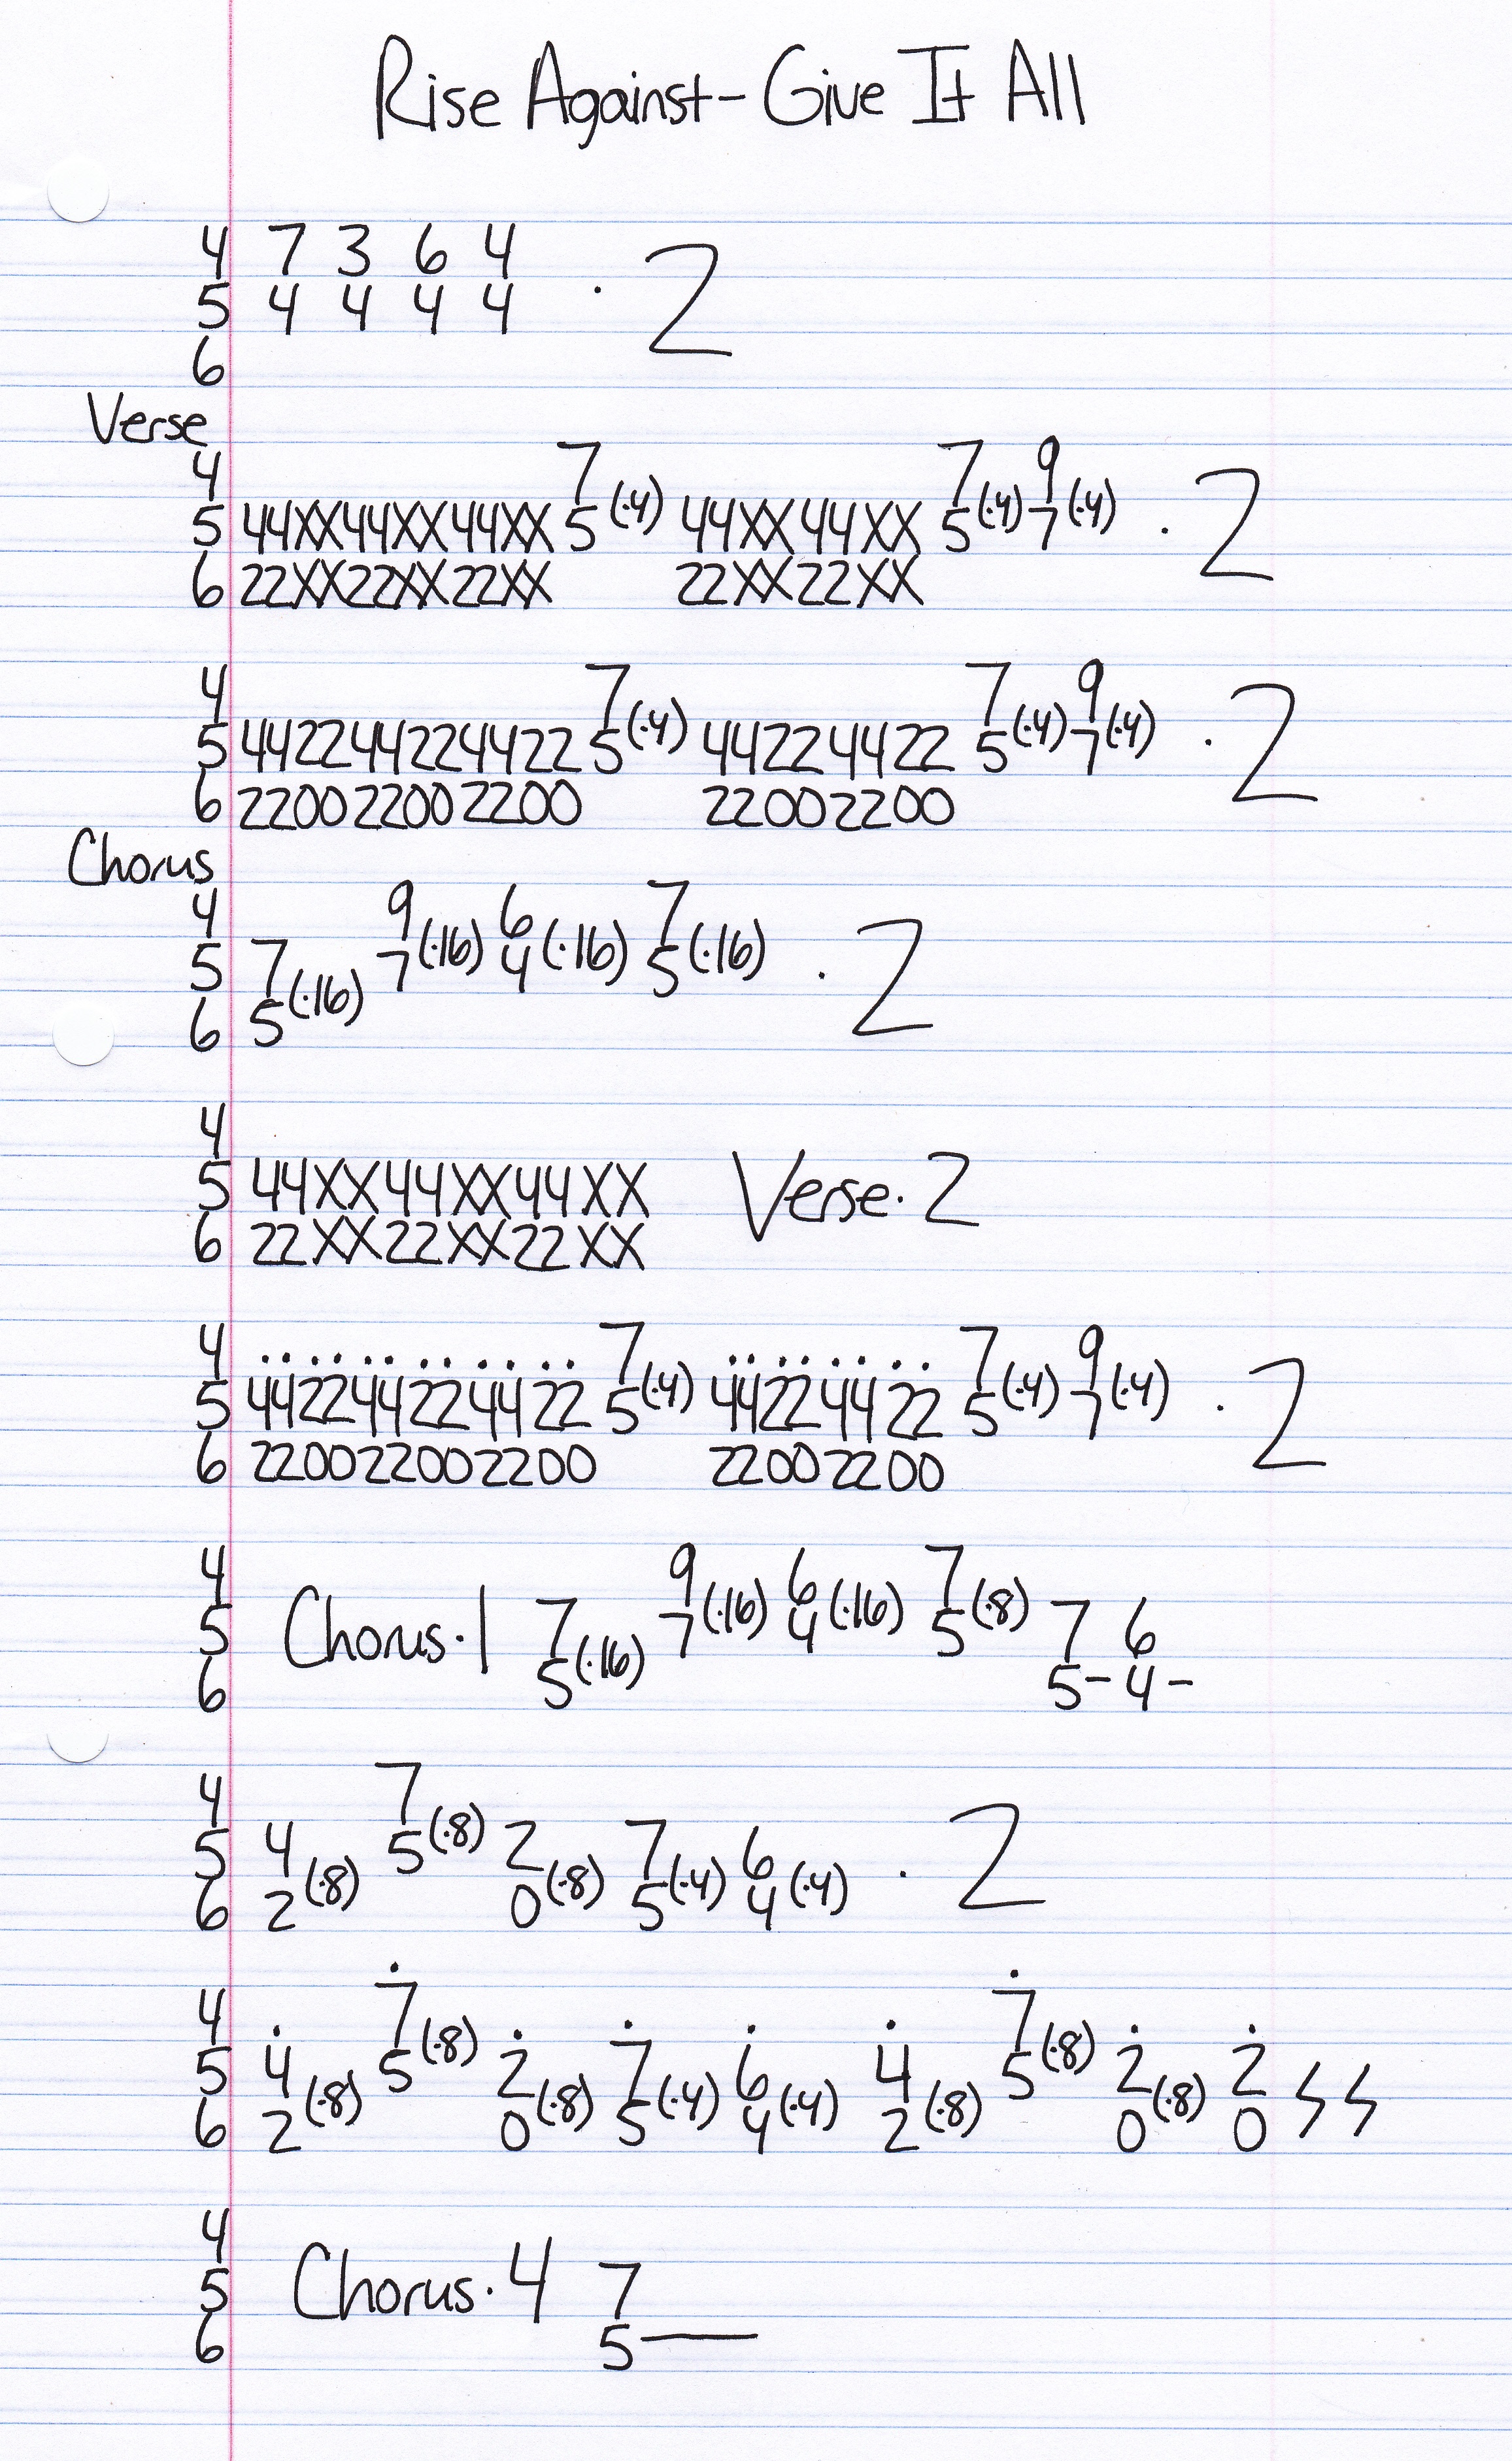 Rise Against - Give It All
4 7 3 6 4
5 4 4 4 4 · 2
6
Verse
4 7 7 9
5 44XX44XX44XX 5 (·4) 44XX44XX 5 (·4) 7 (·4) · 2
6 22XX22XX22XX 22XX22XX
4 7 7 9
5 442244224422 5 (·4) 44224422 5 (·4) 7 (·4) · 2
6 220022002200 22002200
Chorus
4 9 6 7
5 7 7 (·16) 4 (·16) 5 (·16) · 2
6 5 (·16)
4
5 44XX44XX44XX Verse · 2
6 22XX22XX22XX
4 7 7 9
5 442244224422 5 (·4) 44224422 5 (·4) 7 (·4) · 2
6 220022002200 22002200
4 9 6 7
5 Chorus · 1 7 7 (·16) 4 (·16) 5 (·8) 7 6
6 5 (·16) 5 - 4 -
4 7
5 4 5 (·8) 2 7 6 · 2
6 2 (·8) 0 (·8) 5 (·4) 4 (·4)
4 7 7
5 4 5 (·8) 2 7 6 4 5 (·8) 2 2
6 2 (·8) 0 (·8) 5 (·4) 4 (·4) 2 (·8) 0 (·8) 0
4
5 Chorus · 4 7
6 5 —